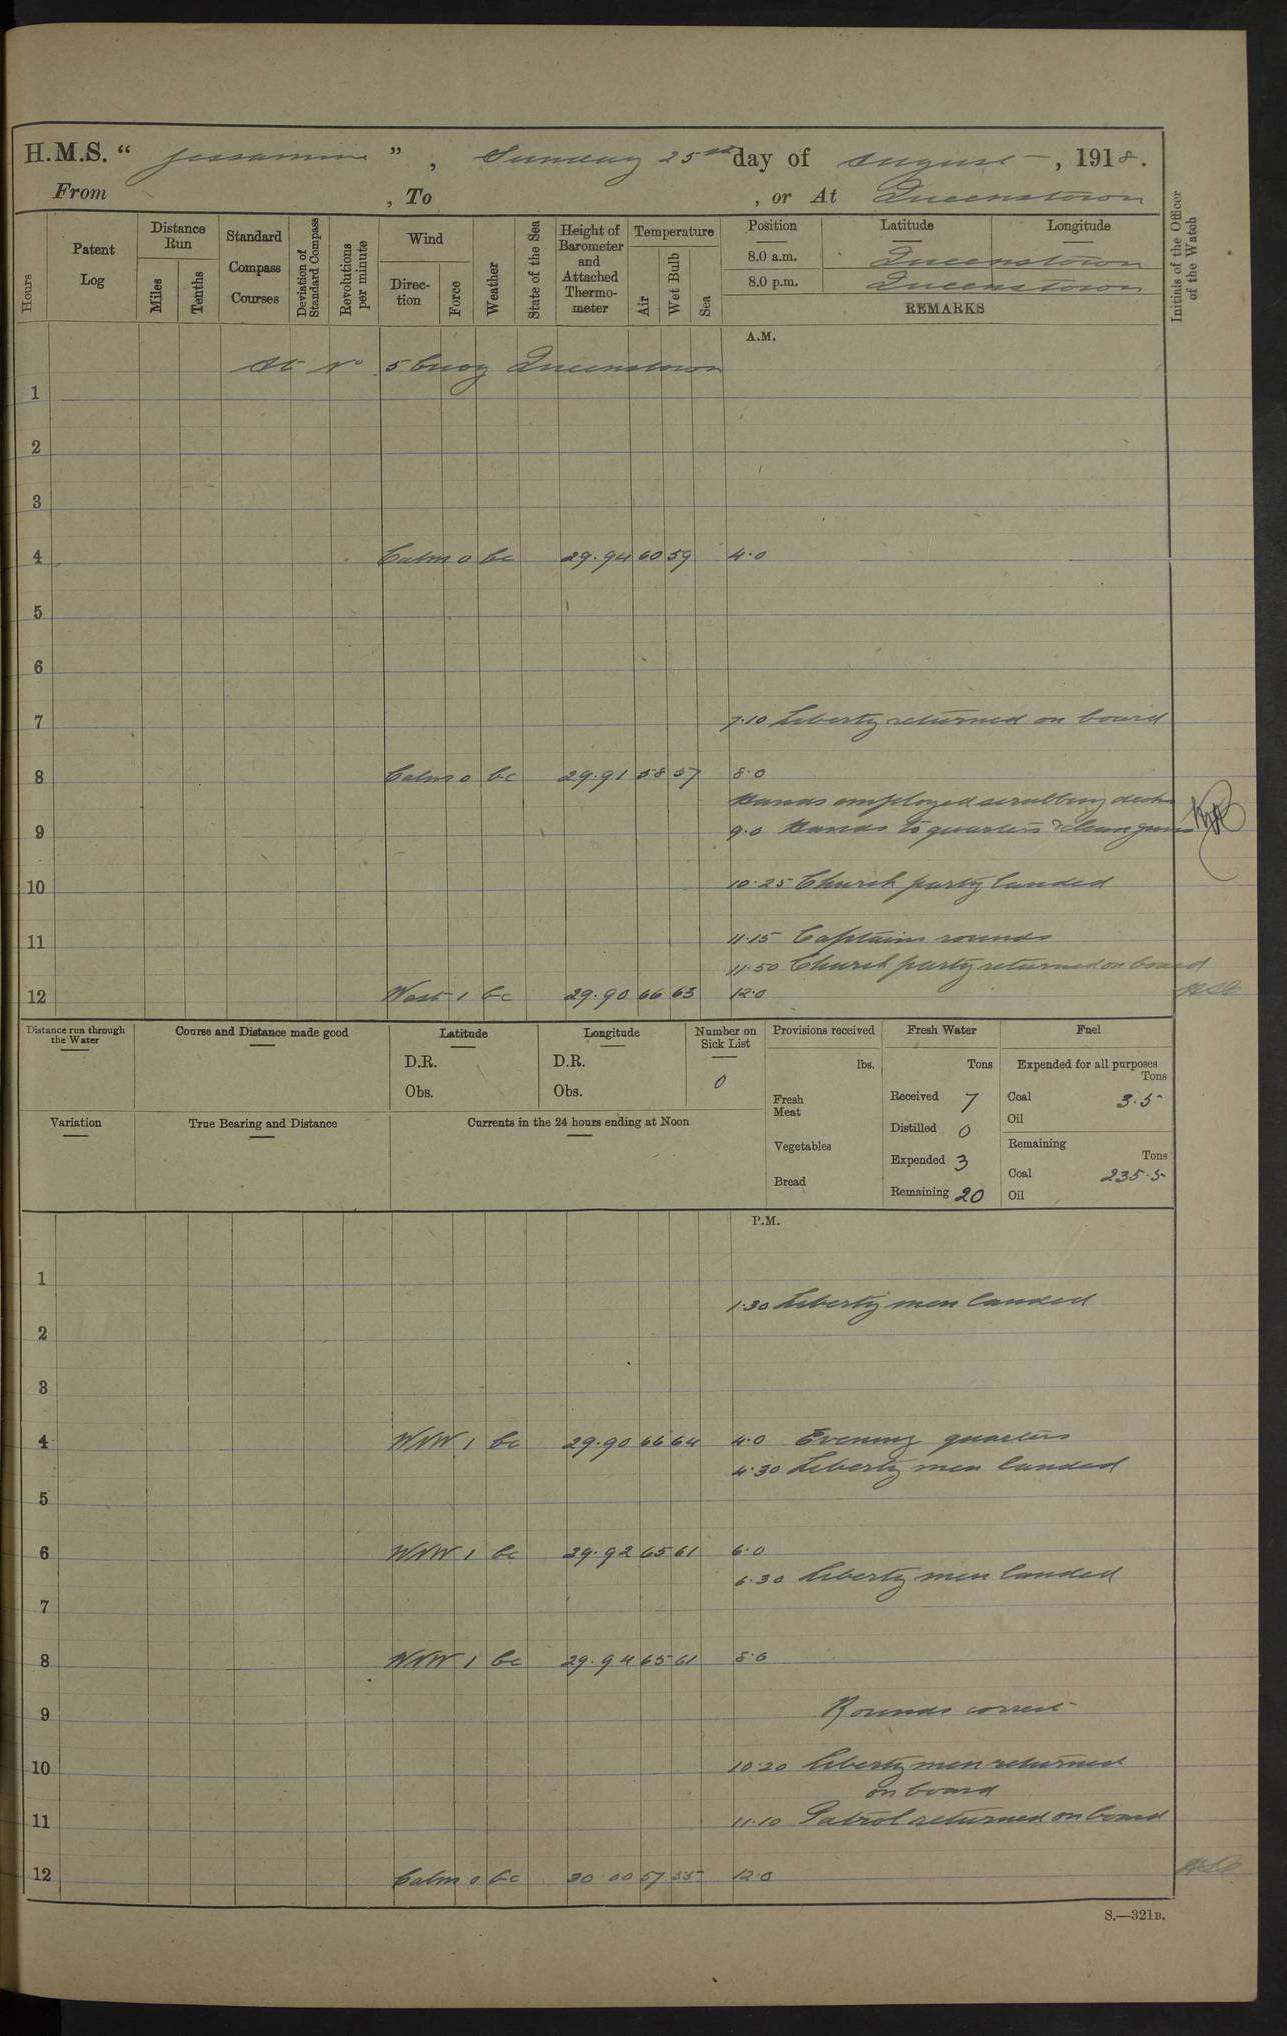 H.M.S. “ Jessamine ” , Sunday 25th day of August , 1918.
From , To , or At Queenstown
Hours
Patent Log
Distance Run
Miles
Tenths
Standard Compass Courses
Deviation of Standard Compass
Revolutions per minute
Wind
Direc-tion
Force
Weather
State of the Sea
Height of Barometer and Attached Thermo-meter
Temperature
Air
Wet Bulb
Sea
Position Latitude Longitude
8.0 a.m. Queenstown
8.0 p.m. Queenstown
REMARKS
Initials of the Officer of the Watch
A.M.
At No 5 buoy Queenstown
1
2
3
4 Calm 0 bc 29.94 60 59 4.0
5
6
7 7.10 Liberty returned on board
8 Calm 0 bc 29.91 58 57 8.0
Hands employed scrubbing decks
9 9.0 Hands to quarters & clean guns
10 10.25 Church party landed
11 11.15 Captains rounds
11.50 Church party returned on board
12 West 1 bc 29.90 66 63 12.0
Distance run through the Water
Course and Distance made good
Latitude
D.R.
Obs.
Longitude
D.R.
Obs.
Number on Sick List
0
Provisions received
lbs.
Fresh Meat
Vegetables
Bread
Fresh Water
Tons
Received 7
Distilled 0
Expended 3
Remaining 20
Fuel
Expended for all purposes
Tons
Coal 3.5
Oil
Remaining
Tons
Coal 235.5
Oil
Variation
True Bearing and Distance
Currents in the 24 hours ending at Noon
P.M.
1
1.30 Liberty men landed
2
3
4 WNW 1 bc 29.90 66 64 4.0 Evening quarters
4.30 Liberty men landed
5
6 WNW 1 bc 29.92 65 61 6.0
6.30 Liberty men landed
7
8 WNW 1 bc 29.94 65 61 8.0
9 Rounds correct
10 10.20 Liberty men returned
on board
11 11.10 Patrol returned on board
12 Calm 0 bc 30 00 57 55 12.0
S.—321B.